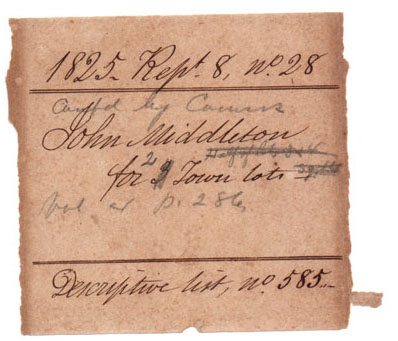 1825. Rept. 8, no. 28
Conf'd by Comrs.
John Middleton
for 2 Town lots
Vol p. 286,
Descriptive list, no. 585.